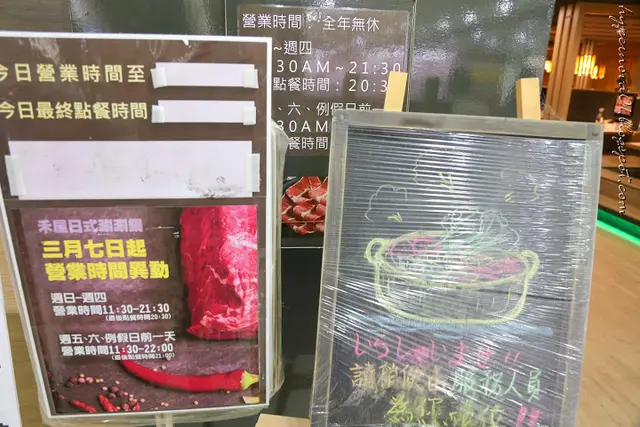 營業時間：全年無休
~週四
30AM~21:30
點餐時間：20:3
、六、例假日前一
30AM
餐時間：
今日營業時間至
今日最終點餐時間
禾屋日式涮涮鍋
三月七日起
營業時間異動
週日-週四
營業時間11:30-21:30
(最後點餐時間20:30)
週五、六、例假日前一天
營業時間11:30-22:00
(最後點餐時間21:00)
いらっしゃいませ!!
請稍候由服務人員
為你帶位!!